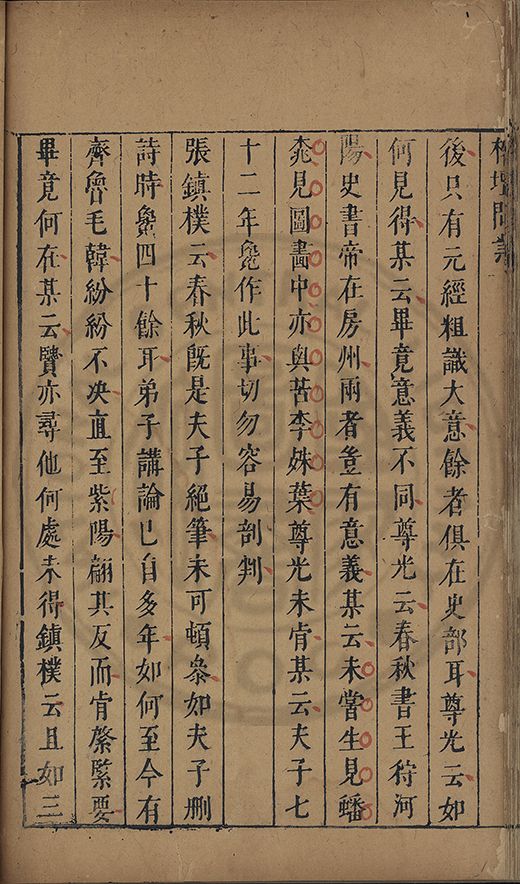 榕壇問業
後只有元經粗識大意餘者俱在史部耳尊光云如
何見得某云畢竟意義不同尊光云春秋書王狩河
陽史書帝在房州兩者豈有意義某云未嘗生見蟠
桃見圖畵中亦與苦李殊葉尊光未肯某云夫子七
十二年纔作此事切勿容易剖判
張鎮樸云春秋旣是夫子絕筆未可頓叅如夫子刪
詩時纔四十餘耳弟子講論已自多年如何至今有
齊魯毛韓紛紛不决直至紫陽翻其反而肯綮緊要
畢竟何在某云賢亦尋他何處未得鎮樸云且如三